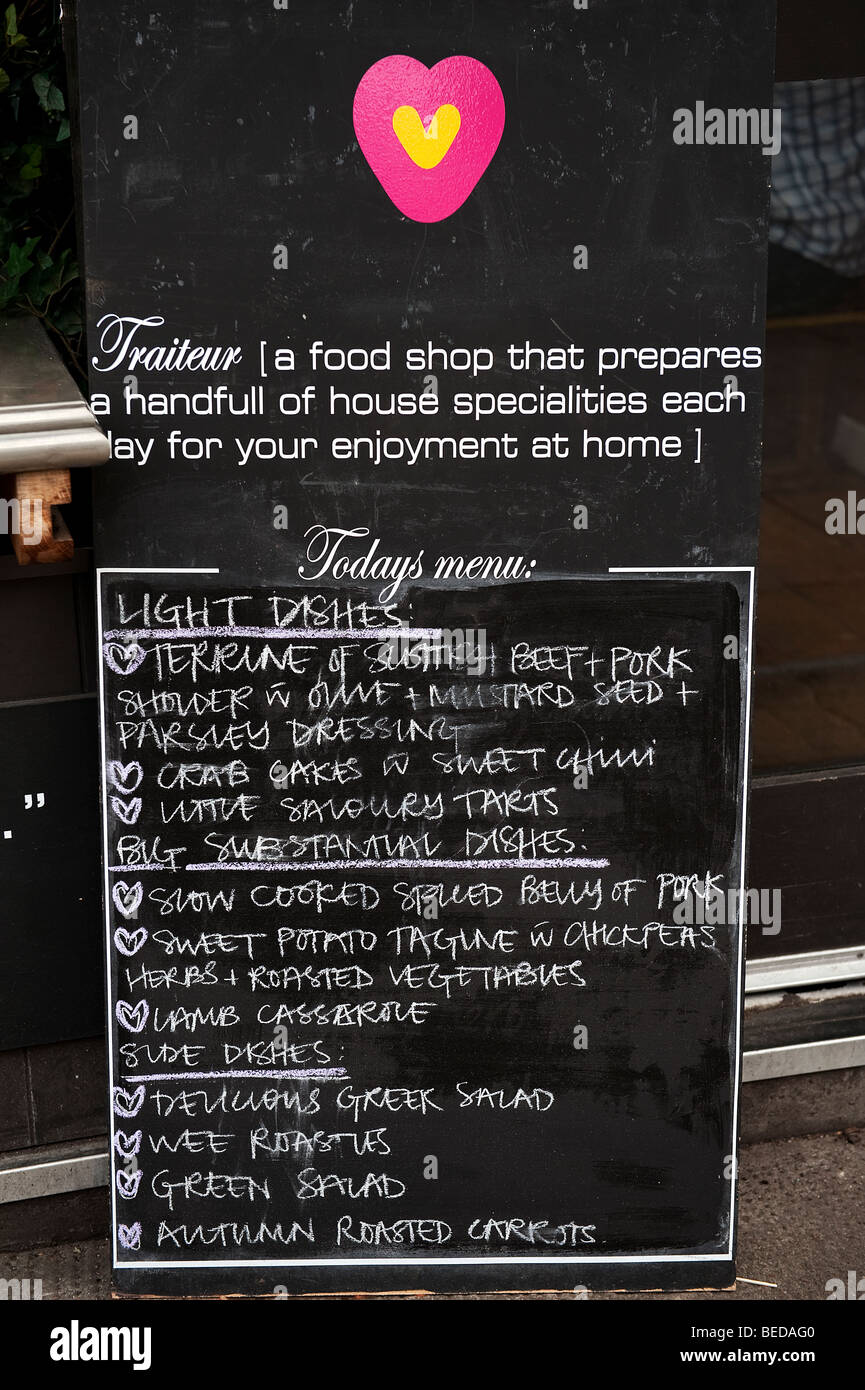 Traiteur [a food shop that prepares
a handfull of house specialities each
day for your enjoyment at home]
Todays menu:
LIGHT DISHES:
TERRINE OF SCOTTISH BEEF + PORK
SHOULDER W OLIVE + MUSTARD SEED +
PARSLEY DRESSING
CRAB CAKES W SWEET CHILLI
LITTLE SAVOURY TARTS
BIG SUBSTANTIAL DISHES:
SLOW COOKED SPICED BELLY OF PORK
SWEET POTATO TAGINE W CHICKPEAS
HERBS + ROASTED VEGETABLES
LAMB CASSEROLE
SIDE DISHES:
DELICIOUS GREEK SALAD
WEE ROASTIES
GREEN SALAD
AUTUMN ROASTED CARROTS.
."
alamy
alamy
Image ID: BEDAG0
www.alamy.com